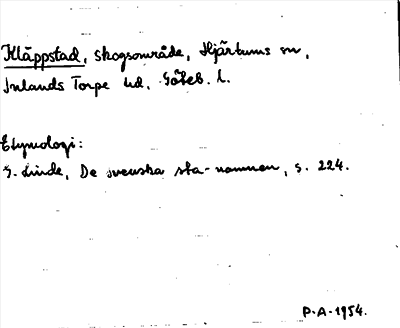 Kläppstad, skogsområde, Hjärtums sn,
Inlands Torpe hd, Göteb. l.
Etymologi:
G. Linde, De svenska sta-namnen, s. 224.
P.A. 1954.